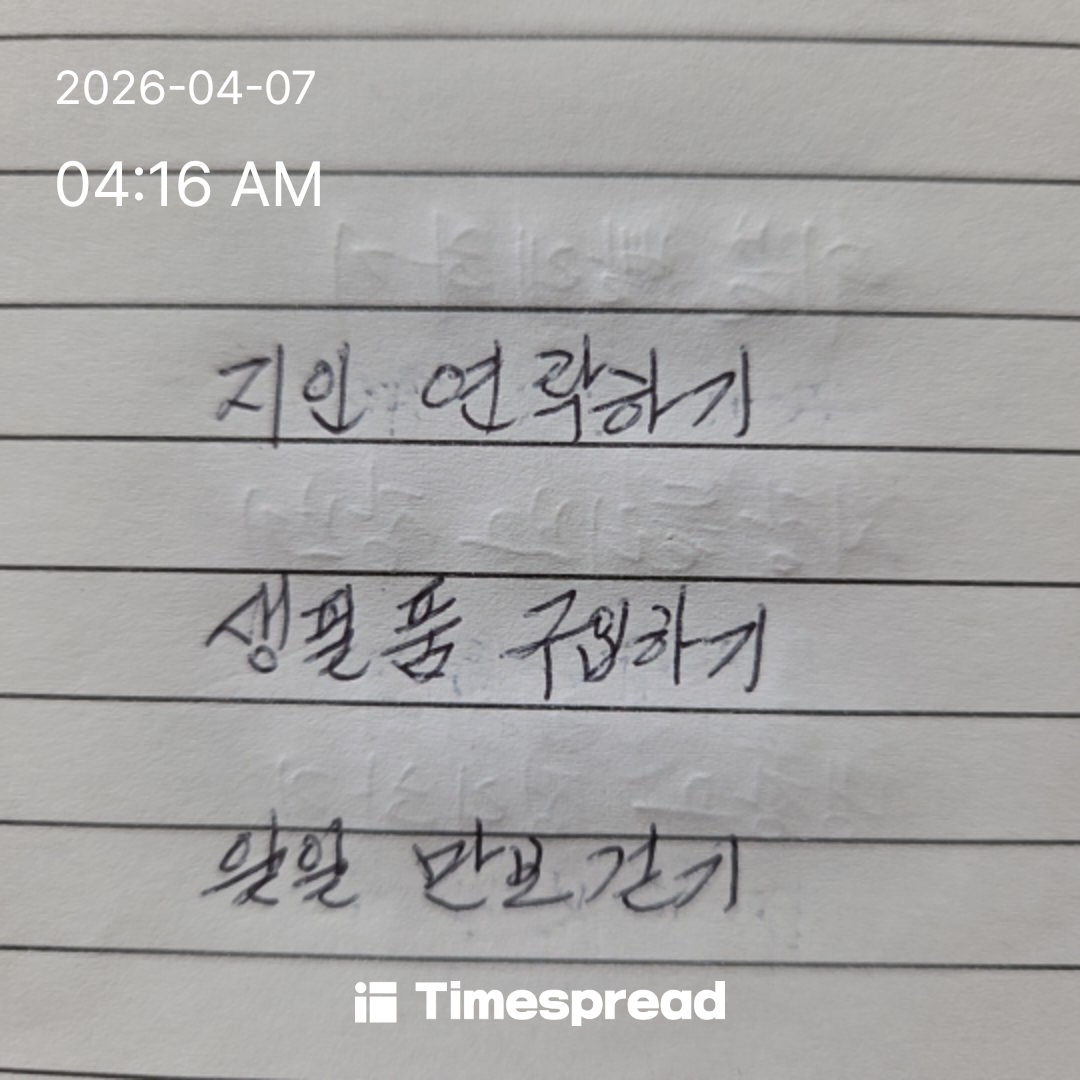 2026-04-07
04:16 AM
지인 연락하기
생필품 구입하기
일일 만보 걷기
Timespread